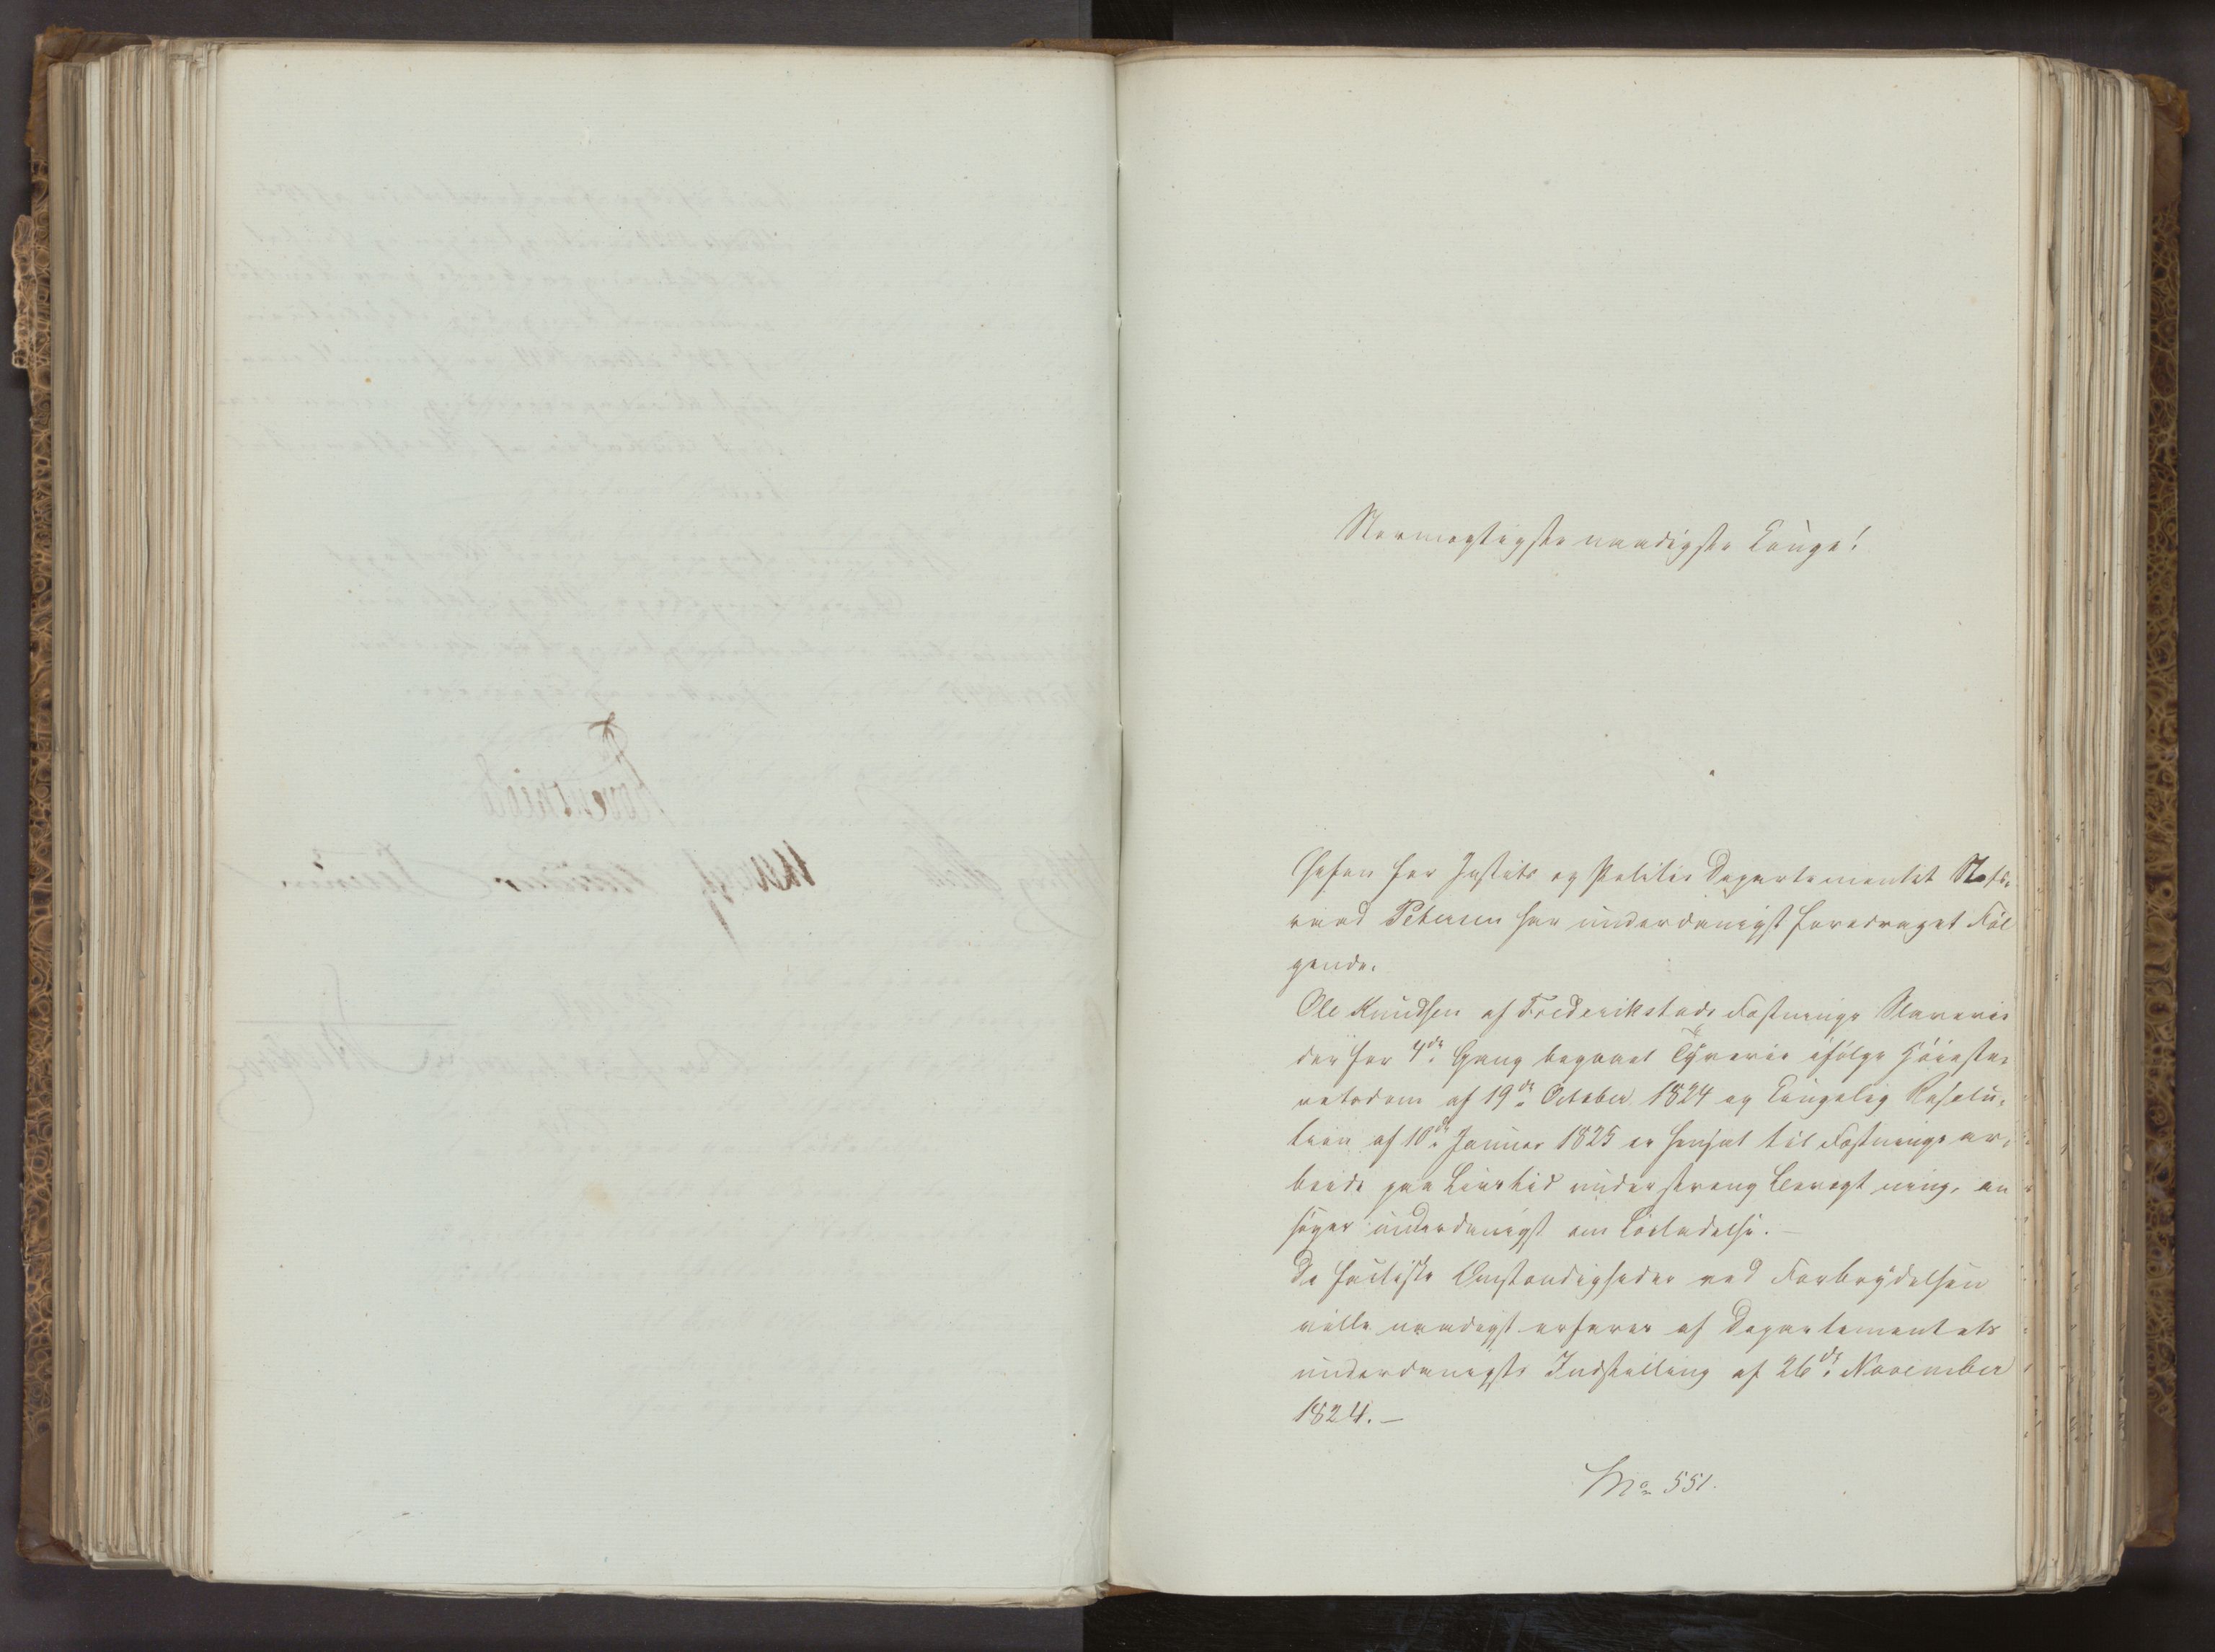 Stormægtigste naadigste Konge!
Chefen for Justits og Politie Departementet Stats-
raad Petersen har underdanigst foredraget Føl
gende.
Ole Knudsen af Frederikstads Fæstnings Slaverie
der for 4de Gang begaaet Tyverie ifølge Høieste-
retsdom af 19de October 1824 og Kongelig Resolu-
tion af 10de Januar 1825 er hensat til Fæstningsar-
beide paa Livstid under streng Bevogtning, an
søger underdanigst om Løsladelse. —
De factiske Omstændigheder ved Forbrydelsen
ville naadigst erfares af Departementets
underdanigste Indstilling af 26de November
1824. —
No 551.